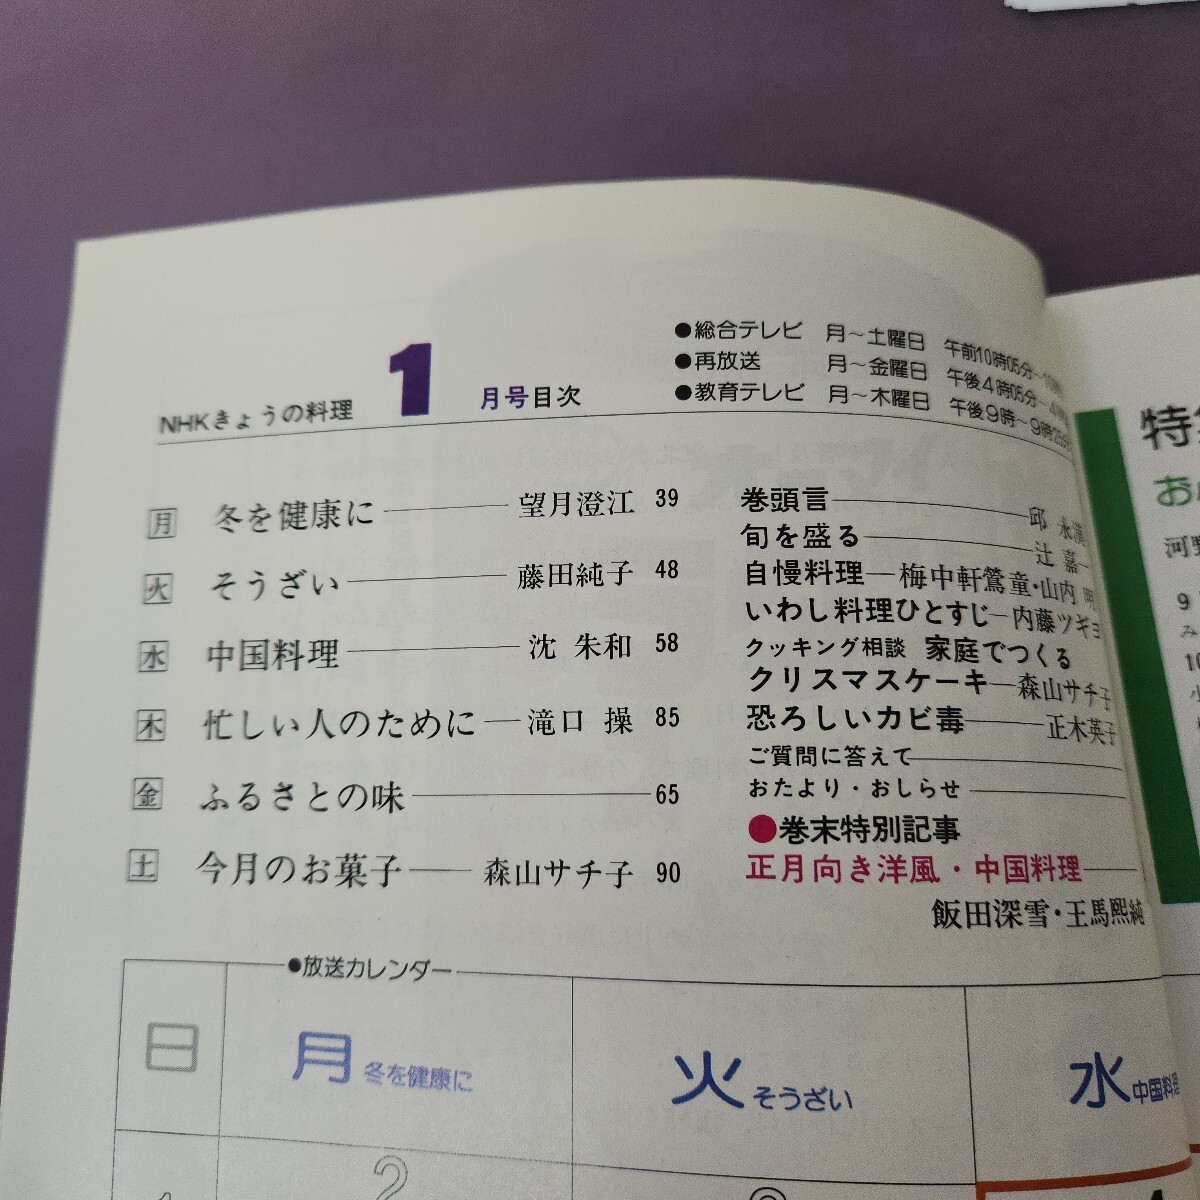 NHKきょうの料理 1月号目次
●総合テレビ 月〜土曜日 午前10時05分〜10時
●再放送 月〜金曜日 午後4時05分〜4時
●教育テレビ 月〜木曜日 午後9時〜9時25分
月 冬を健康に 望月澄江 39
火 そうざい 藤田純子 48
水 中国料理 沈 朱和 58
木 忙しい人のために 滝口 操 85
金 ふるさとの味 65
土 今月のお菓子 森山サチ子 90
巻頭言 邱 永漢
旬を盛る 辻 嘉一
自慢料理 梅中軒鶯童・山内 明
いわし料理ひとすじ 内藤ツギヨ
クッキング相談 家庭でつくる
クリスマスケーキ 森山サチ子
恐ろしいカビ毒 正木英子
ご質問に答えて
おたより・おしらせ
●巻末特別記事
正月向き洋風・中国料理
飯田深雪・王馬熙純
●放送カレンダー
日
月 冬を健康に
火 そうざい
水 中国料理
2
特
お
河野
9
み
10